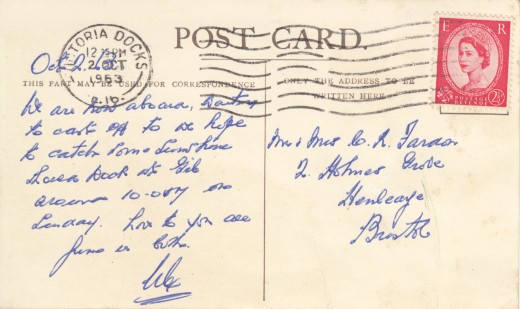 VICTORIA DOCKS
12/15 PM
2 OCT
1963
E.16.
POST CARD.
E R
POSTAGE REVENUE
2½D
THIS PART MAY BE USED FOR CORRESPONDENCE
ONLY THE ADDRESS TO BE
WRITTEN HERE
Oct 2
We are now aboard, waiting
to cast off to we hope
to catch some sunshine
Dock at Gib
around 10-0 on
Sunday. Love to you all
Mr & Mrs C. R.
2. Holmes Grove
Henleaze
Bristol